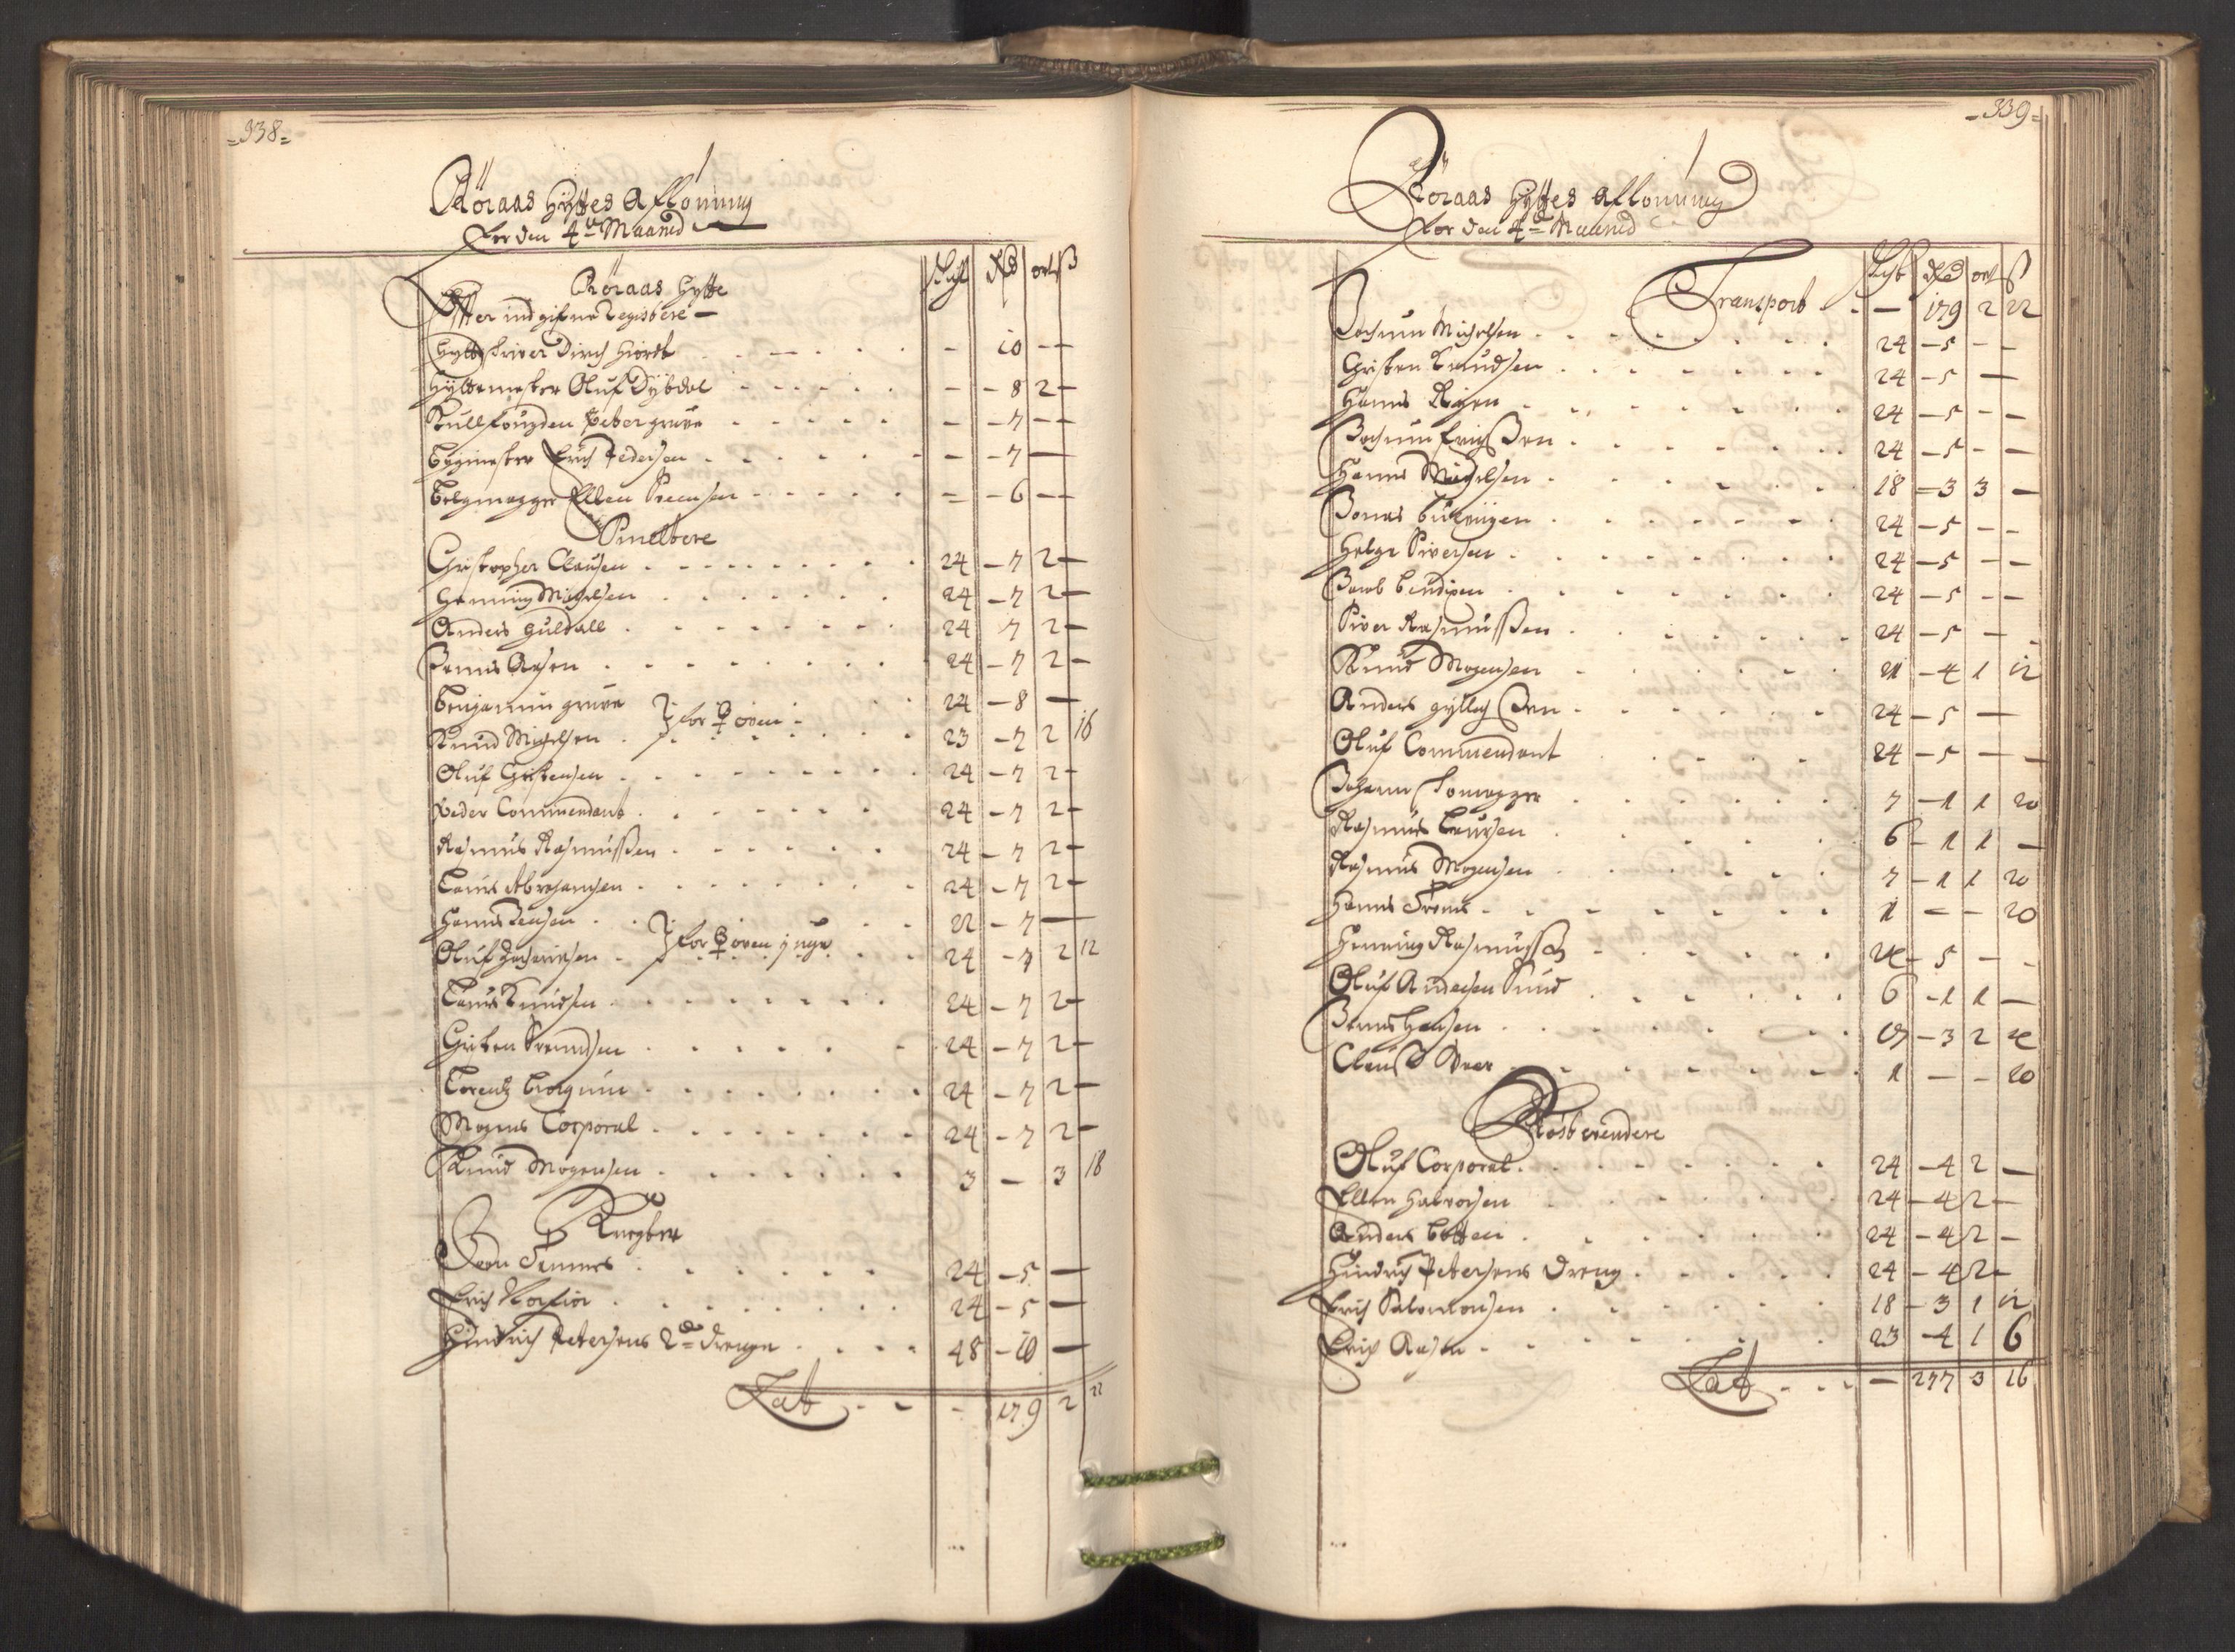 =338=
Röraas Hyttes Aflöning
For den 4de Maaned
Röraas Hytte Schgt Rd ort ß
Effter indgifne Registere
Hytteskriver Dirch Hiordt - 10 - -
Hyttemester Oluf Dybdal - 8 2 -
Kullfougden Peter gruve - 7 - -
Bygmester Erich Pedersen - 7 -
Belgmager Ellen Svensen - 6 - -
Smeltere
Christopher Clausen 24 - 7 2 -
Henning Michelsen 24 - 7 2 -
Anders guldall 24 7 2 -
Jenns Aasen 24 - 7 2 -
Benjamin gruve 24 - 8 -
Knud Michelsen for ♀ oven 23 - 7 2 16
Oluf Christensen 24 - 7 2 -
Peder Commendant 24 - 7 2 -
Rasmus Rasmussen 24 - 7 2 -
Laurs Abrahamsen 24 - 7 2 -
Hanns Jensen 22 - 7 -
Oluf Zachariesen for ♀ oven 24 - 7 2 12
Laurs Knudsen 24 - 7 2 -
Christen Svendsen 24 - 7 2 -
Lorentz 24 - 7 2 -
Mogens Corporal 24 - 7 2 -
Knud Mogensen 3 - 3 18
Knegter
24 - 5 -
Erich 24 - 5 -
Hindrich Petersens 2de drenge 48 - 10 -
Lat - 179 2 22
-339=
Röraas Hyttes Aflöning
For den 4de Maaned
Schgt Rd ort ß
Transport - 179 2 22
Jochum Michelsen 24 - 5 - -
Christen Knudsen 24 - 5 -
Hanns 24 - 5 - -
Jochum Erichsen 24 - 5 - -
Hanns Michelsen 18 - 3 3 -
Jonas 24 - 5 - -
Helge Siversen 24 - 5 - -
Jacob Bendixen 24 - 5 - -
Siver Rasmussen 24 - 5 - -
Knud Mogensen 21 - 4 1 12
Anders 24 - 5 -
Oluf Commendant 24 - 5 - -
Johann 7 - 1 1 20
Rasmus Laursen 6 - 1 1 -
Rasmus Mogensen 7 - 1 1 20
Hanns 1 - - 20
Henning Rasmussen 24 - 5 - -
Oluf Andersen 6 - 1 1 -
Jenns Hansen 17 - 3 2 4
Claus 1 - - 20
Röstvendere
Oluf Corporal 24 - 4 2 -
Ellen Halvorsen 24 - 4 2 -
Anders 24 - 4 2 -
Hindrich Petersens dreng 24 - 4 2 -
Erich Salomonsen 18 - 3 1 12
Erich Aasen 23 - 4 1 6
Lat - 277 3 16